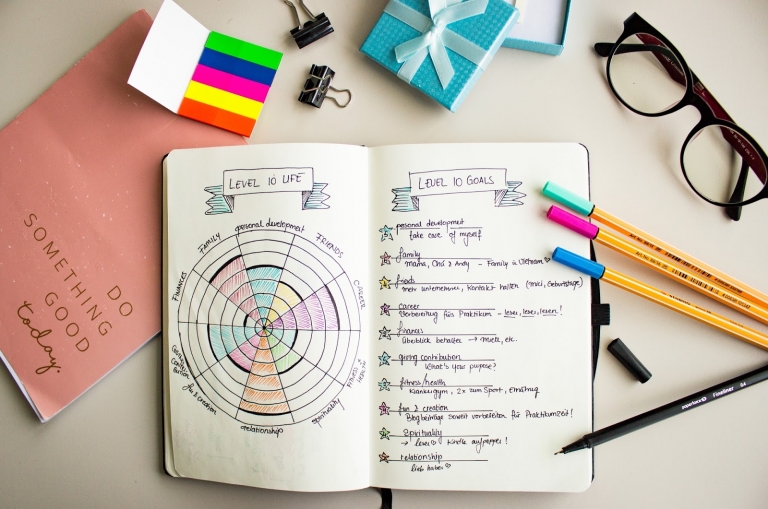 DO
SOMETHING
GOOD
today.
LEVEL 10 LIFE
personal development
FRIENDS
CAREER
FITNESS & HEALTH
spirituality
relationship
fun & creation
FINANCES
FAMILY
LEVEL 10 GOALS
personal development
take care of myself
family
mama, Chú & Andy - Family in Vietnam ♡
mehr unternehmen, Kontakt halten
career
Vorbereitung für Praktikum - lesen, lesen, lesen!
finances
Überblick behalten → miete, etc.
giving contribution
What's your purpose?
fitness/health
2x zum Sport, Ernährung
fun & creation
Blogbeiträge soweit vorbereiten für Praktikumzeit!
Spirituality
→ lesen ♡ Kindle
relationship
lieb haben ♡